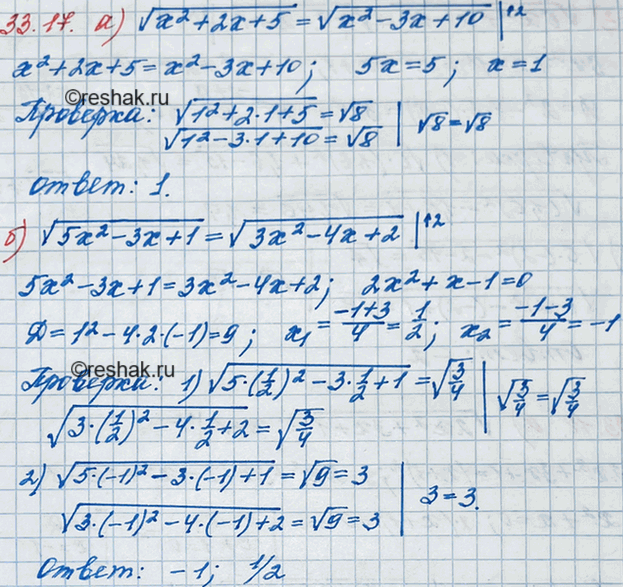 33.17. а) √(x²+2x+5) = √(x²-3x+10) |↑2
x²+2x+5=x²-3x+10; 5x=5; x=1
©reshak.ru
Проверка: √(1²+2·1+5)=√8 | √8=√8
√(1²-3·1+10)=√8
ответ: 1.
б) √(5x²-3x+1)=√(3x²-4x+2) |↑2
5x²-3x+1=3x²-4x+2; 2x²+x-1=0
Д=1²-4·2·(-1)=9; x₁=(-1+3)/4=1/2; x₂=(-1-3)/4=-1
©reshak.ru
Проверка: 1) √(5·(1/2)²-3·1/2+1)=√(3/4) | √(3/4)=√(3/4)
√(3·(1/2)²-4·1/2+2)=√(3/4)
2) √(5·(-1)²-3·(-1)+1)=√9=3 | 3=3.
√(3·(-1)²-4·(-1)+2)=√9=3
Ответ: -1; 1/2